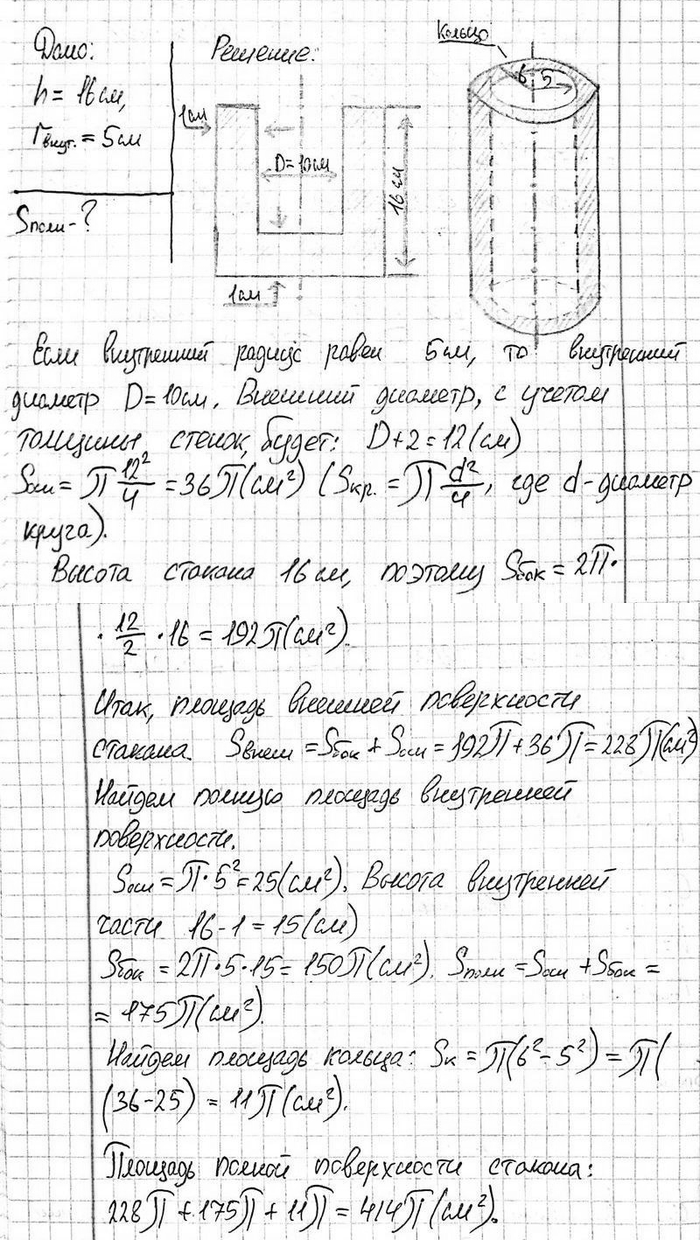 Дано:
h = 16 см,
rвнут. = 5 см
Sполн - ?
Решение:
1 см
D = 10 см
16 см
1 см
Кольцо
6
5
Если внутренний радиус равен 5 см, то внутренний
диаметр D = 10 см. Внешний диаметр, с учетом
толщины стенок, будет: D + 2 = 12 (см)
Sосн = π 12²/4 = 36π (см²) (Sкр. = π d²/4, где d - диаметр
круга).
Высота стакана 16 см, поэтому Sбок = 2π ·
· 12/2 · 16 = 192π (см²).
Итак, площадь внешней поверхности
стакана. Sвнеш = Sбок + Sосн = 192π + 36π = 228π (см²)
Найдем полную площадь внутренней
поверхности.
Sосн = π · 5² = 25 (см²). Высота внутренней
части 16 - 1 = 15 (см)
Sбок = 2π · 5 · 15 = 150π (см²). Sполн = Sосн + Sбок =
= 175π (см²).
Найдем площадь кольца: Sк = π(6² - 5²) = π(
(36 - 25) = 11π (см²).
Площадь полной поверхности стакана:
228π + 175π + 11π = 414π (см²).